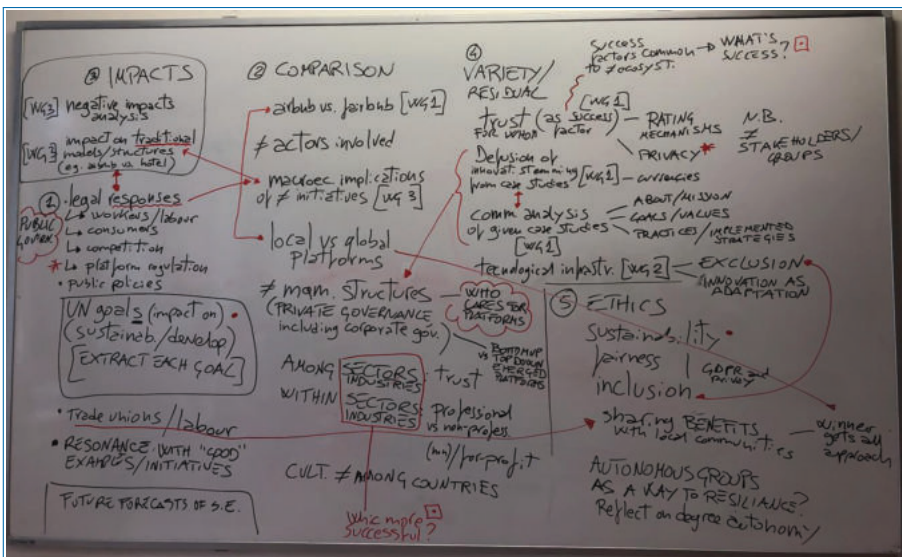 ③ IMPACTS
[WG3] negative impacts
analysis
[WG3] impact on traditional
models/structures
(e.g. airbnb vs. hotel)
① • legal responses
PUBLIC
GOVERN.
↳ workers/labour
↳ consumers
↳ competition
* ↳ platform regulation
• public policies
UN goals (impact on)
(sustainab./develop)
[EXTRACT EACH GOAL]
• Trade unions/labour
• RESONANCE WITH "GOOD"
EXAMPLES/INITIATIVES
FUTURE FORECASTS OF S.E.
② COMPARISON
airbnb vs. fairbnb [WG1]
≠ actors involved
macroec implications
of ≠ initiatives [WG3]
local vs global
platforms
≠ mgm. structures
(PRIVATE GOVERNANCE
including corporate gov.)
WHO
CARES FOR
PLATFORMS
BOTTOM UP
vs TOP DOWN
EMERGED
PLATFORMS
AMONG SECTORS
INDUSTRIES
WITHIN SECTORS
INDUSTRIES
trust
professional
vs non-profess.
/for-profit
CULT. ≠ AMONG COUNTRIES
Whic more
successful?
④
VARIETY/
RESIDUAL
success
factors common
to ≠ ecosyst.
→ WHAT'S
SUCCESS?
[WG1]
trust (as success
factor)
FOR WHOM
RATING
MECHANISMS
PRIVACY *
N.B.
≠
STAKEHOLDERS/
GROUPS
Defusion of
innovat. stemming
from case studies [WG1] - currencies
comm analysis
of given case studies
[WG1]
ABOUT/MISSION
GOALS/VALUES
PRACTICES/IMPLEMENTED
STRATEGIES
tecnological infrastr. [WG2]
EXCLUSION
INNOVATION AS
ADAPTATION
⑤ ETHICS
sustainability
fairness
inclusion
GDPR and
privacy
sharing BENEFITS
with local communities
winner
gets all
approach
AUTONOMOUS GROUPS
AS A WAY TO RESILIANCE?
Reflect on degree autonomy